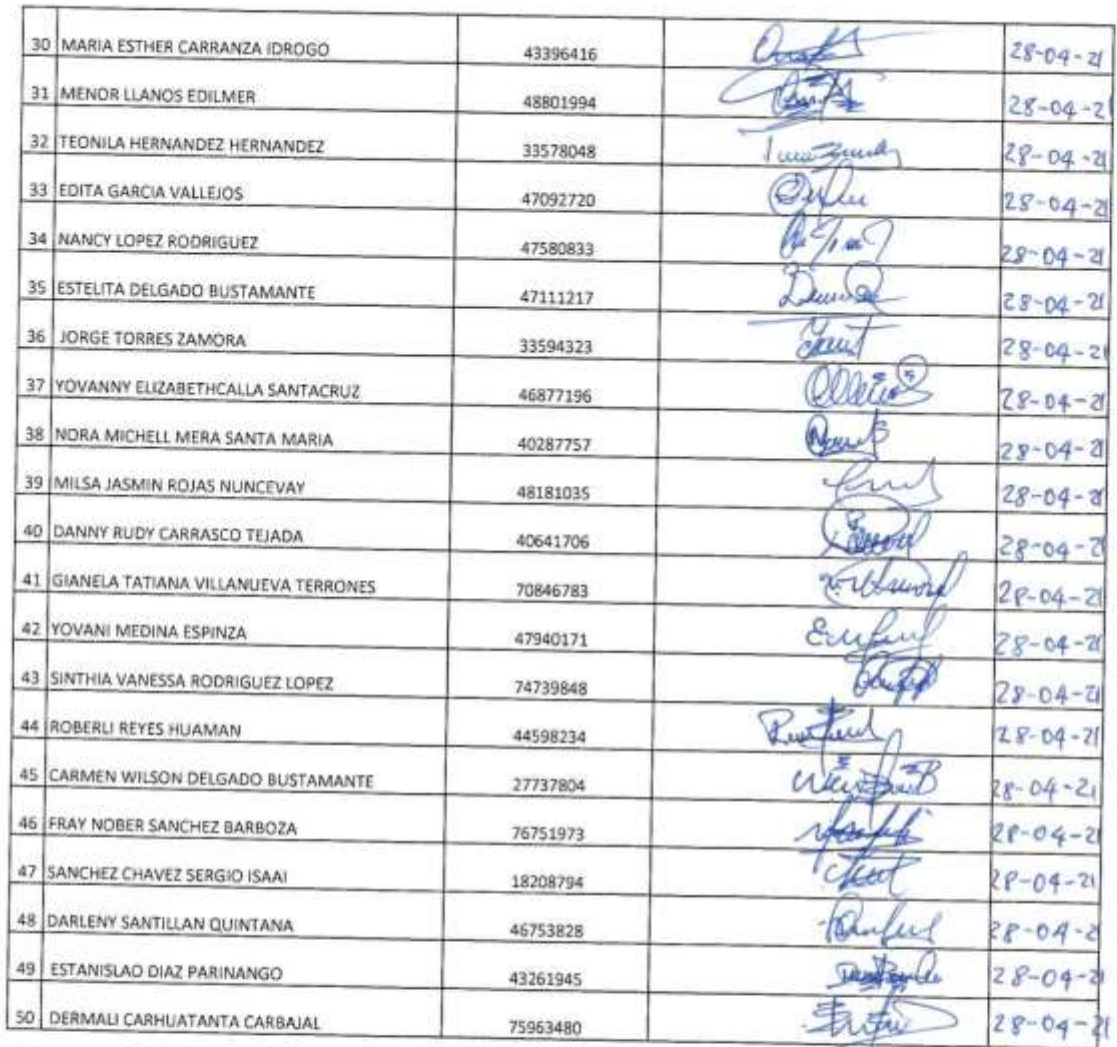 30 MARIA ESTHER CARRANZA IDROGO 43396416 28-04-21
31 MENOR LLANOS EDILMER 48801994 28-04-2
32 TEONILA HERNANDEZ HERNANDEZ 33578048 28-04-21
33 EDITA GARCIA VALLEJOS 47092720 28-04-21
34 NANCY LOPEZ RODRIGUEZ 47580833 28-04-21
35 ESTELITA DELGADO BUSTAMANTE 47111217 28-04-21
36 JORGE TORRES ZAMORA 33594323 28-04-21
37 YOVANNY ELIZABETHCALLA SANTACRUZ 46877196 28-04-21
38 NORA MICHELL MERA SANTA MARIA 40287757 28-04-21
39 MILSA JASMIN ROJAS NUNCEVAY 48181035 28-04-21
40 DANNY RUDY CARRASCO TEJADA 40641706 28-04-21
41 GIANELA TATIANA VILLANUEVA TERRONES 70846783 28-04-21
42 YOVANI MEDINA ESPINZA 47940171 28-04-21
43 SINTHIA VANESSA RODRIGUEZ LOPEZ 74739848 28-04-21
44 ROBERLI REYES HUAMAN 44598234 28-04-21
45 CARMEN WILSON DELGADO BUSTAMANTE 27737804 28-04-21
46 FRAY NOBER SANCHEZ BARBOZA 76751973 28-04-21
47 SANCHEZ CHAVEZ SERGIO ISAAI 18208794 28-04-21
48 DARLENY SANTILLAN QUINTANA 46753828 28-04-2
49 ESTANISLAO DIAZ PARINANGO 43261945 28-04-21
50 DERMALI CARHUATANTA CARBAJAL 75963480 28-04-21